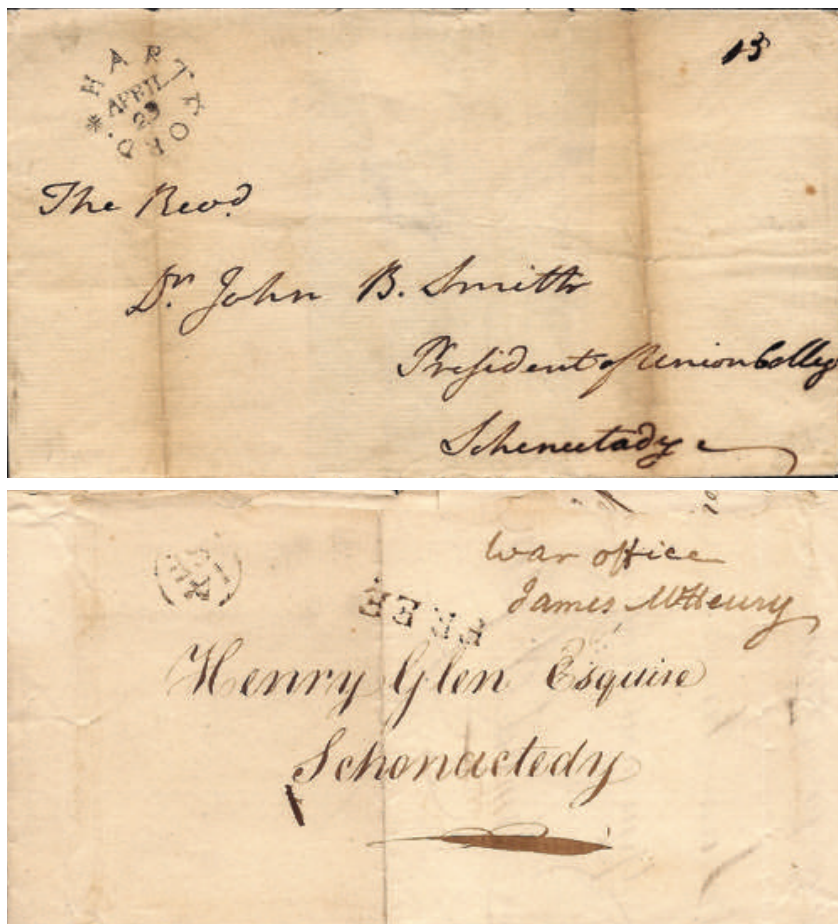 13
* HARTFORD.
APRIL
23
The Revd.
Dr. John B. Smith
President of Union Colleg
Schenectady
War office
James McHenry
FREE
Henry Glen Esquire
Schonactedy